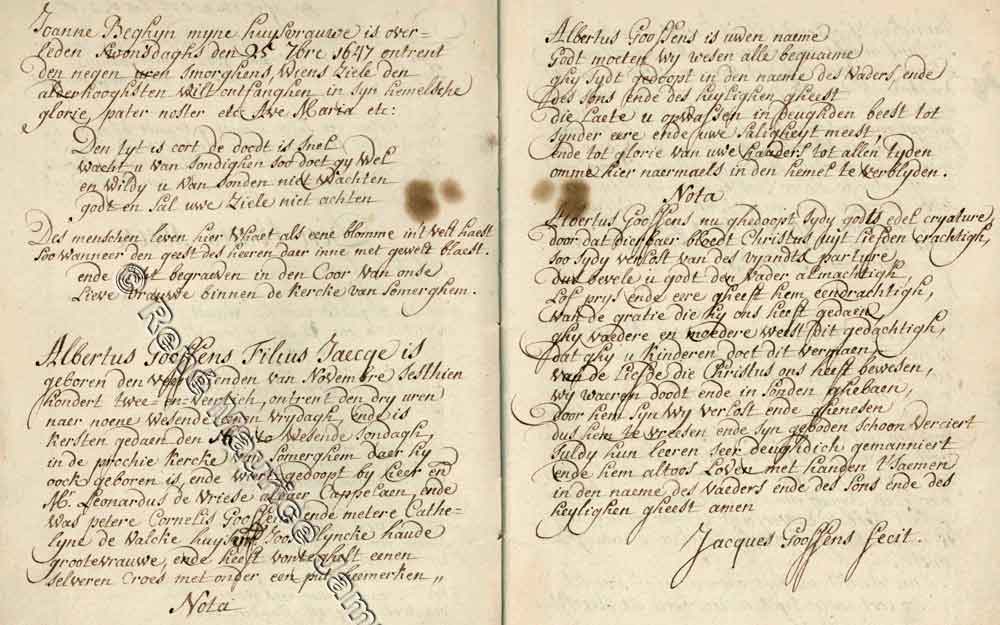 Joanne Beghyn myne huysvrauwe is over=
leden swonsdaghs den 25 7bre 1647 ontrent
den negen uren smorghens, wiens ziele den
alderhooghsten wilt ontfanghen in syn hemelsche
glorie, pater noster etc Ave Maria etc:
Den tyt is cort de doodt is snel
wacht u van sondighen soo doet gy wel
en wildy u van sonden niet wachten
godt en sal uwe ziele niet achten
Des menschen leven hier staet als eene blomme int velt
soo wanneer den geest des heeren daer inne met gewelt blaest.
ende begraeven in den Coor van onse
Lieve vrauwe binnen de kercke van Somerghem.
Albertus Goossens Filius Jaecqe is
geboren den van Novembre sesthien
hondert twee en ontrent den dry uren
naer noene wesende eenen vrydagh, ende is
kersten gedaen den wesende sondagh
in de prochie kercke van Somerghem daer hy
oock geboren is, ende wiert gedoopt by heer en
Mr. Leonardus de Vriese aldaer Cappelaen, ende
was petere Cornelis Goossens ende metere Cathe=
lyne de Valcke huysvr Joos lyncke haude
grootevrauwe, ende heeft eenen
selveren croes met onder een
Nota
Albertus Goossens is uwen naeme
Godt moeten wy wesen alle bequaeme
ghy sydt gedoopt in den naeme des vaders, ende
des sons ende des heylighen gheest
die laete u opwassen in deughden beest tot
synder eere ende uwe saligheyt meest,
ende tot glorie van uwe haaders tot allen tyden
omme hier naermaels in den hemel te verblyden.
Nota
Albertus Goossens nu ghedoopt sydy gods edel cryature,
door dat dierbaer bloedt Christus uyt liefden crachtigh,
soo sydy verlost van des vyandts parture
dus bevele u godt den vader almachtigh,
Lof prys ende eere gheeft hem eendrachtigh,
van de gratie die hy ons heeft gedaen,
ghy vaedere en moedere weest dit gedachtigh,
dat ghy u kinderen doet dit vermaen,
van de liefde die Christus ons heeft bewesen,
wy waeren doodt ende in sonden ghebaen,
door hem syn wy verlost ende ghenesen
dus hem te vreesen ende syn geboden schoon verciert
suldy hun leeren seer deughdich gemanniert
ende hem altoos Loven met handen t'saemen
in den naeme des vaeders ende des sons ende des
heylighen gheest amen
Jacques Goossens fecit.